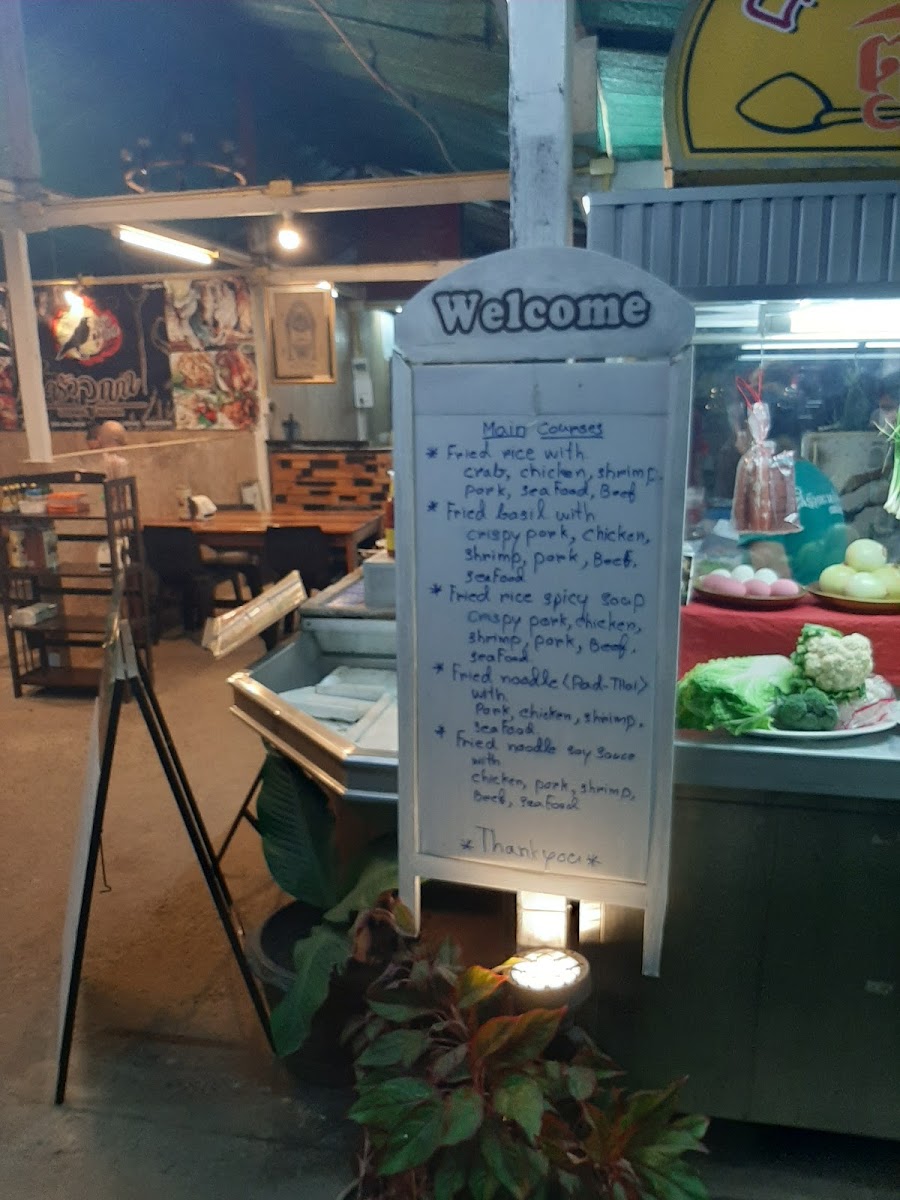 Welcome
Main Courses
* Fried rice with
crab, chicken, shrimp,
pork, seafood, Beef
* Fried basil with
crispy pork, chicken,
shrimp, pork, Beef,
seafood
* Fried rice spicy soup
crispy pork, chicken,
shrimp, pork, Beef,
seafood
* Fried noodle (Pad-Thai)
with
Pork, chicken, shrimp,
seafood
* Fried noodle soy sauce
with
chicken, pork, shrimp,
Beef, seafood
* Thank you *